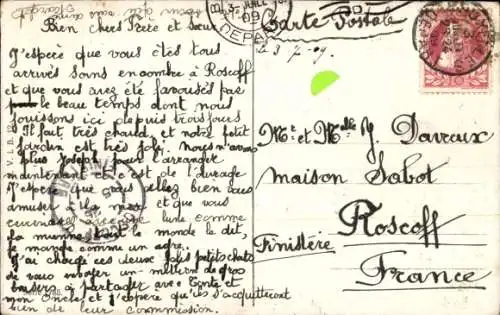 Carte Postale
Le 3-7-09.
Bien chers Frère et Sœur
J'espère que vous êtes tous
arrivés sans encombre à Roscoff
et que vous avez été favorisés par
le beau temps dont nous
jouissons ici depuis trois jours
Il fait très chaud, et notre petit
jardin est très joli. Nous n'avons
plus Joseph pour l'arranger
maintenant et c'est de l'ouvrage
J'espère que vous allez bien vous
amuser à la mer, et que vous
comme
le monde le dit,
je mange comme un ogre.
J'ai chargé ces deux petits chats
de vous envoyer un million de gros
baisers à partager avec Tante et
mon Oncle et j'espère qu'ils s'acquitteront
bien de leur commission.
Mr et Melle J. Davreux
maison Sabot
Roscoff
Finistère
France